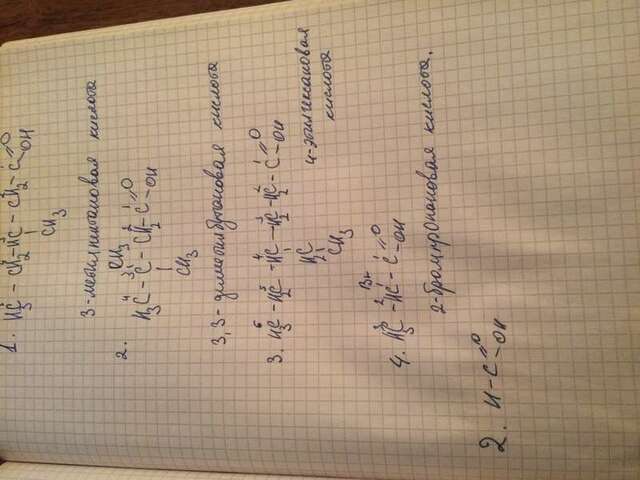 1. H₃C - CH₂ - HC - CH₂ - C =O
OH
CH₃
3-метилпентановая кислота
2.
CH₃
H₃C⁴ - C³ - CH₂² - C¹ =O
- OH
CH₃
3,3-диметилбутановая кислота
3. H₃C⁶ - H₂C⁵ - HC⁴ - H₂C³ - H₂C² - C¹ =O
- OH
H₂C
CH₃
4-этилгексановая
кислота
Br
4. H₃C³ - HC² - C¹ =O
- OH
2-бромпропановая кислота.
2. H - C =O
- OH